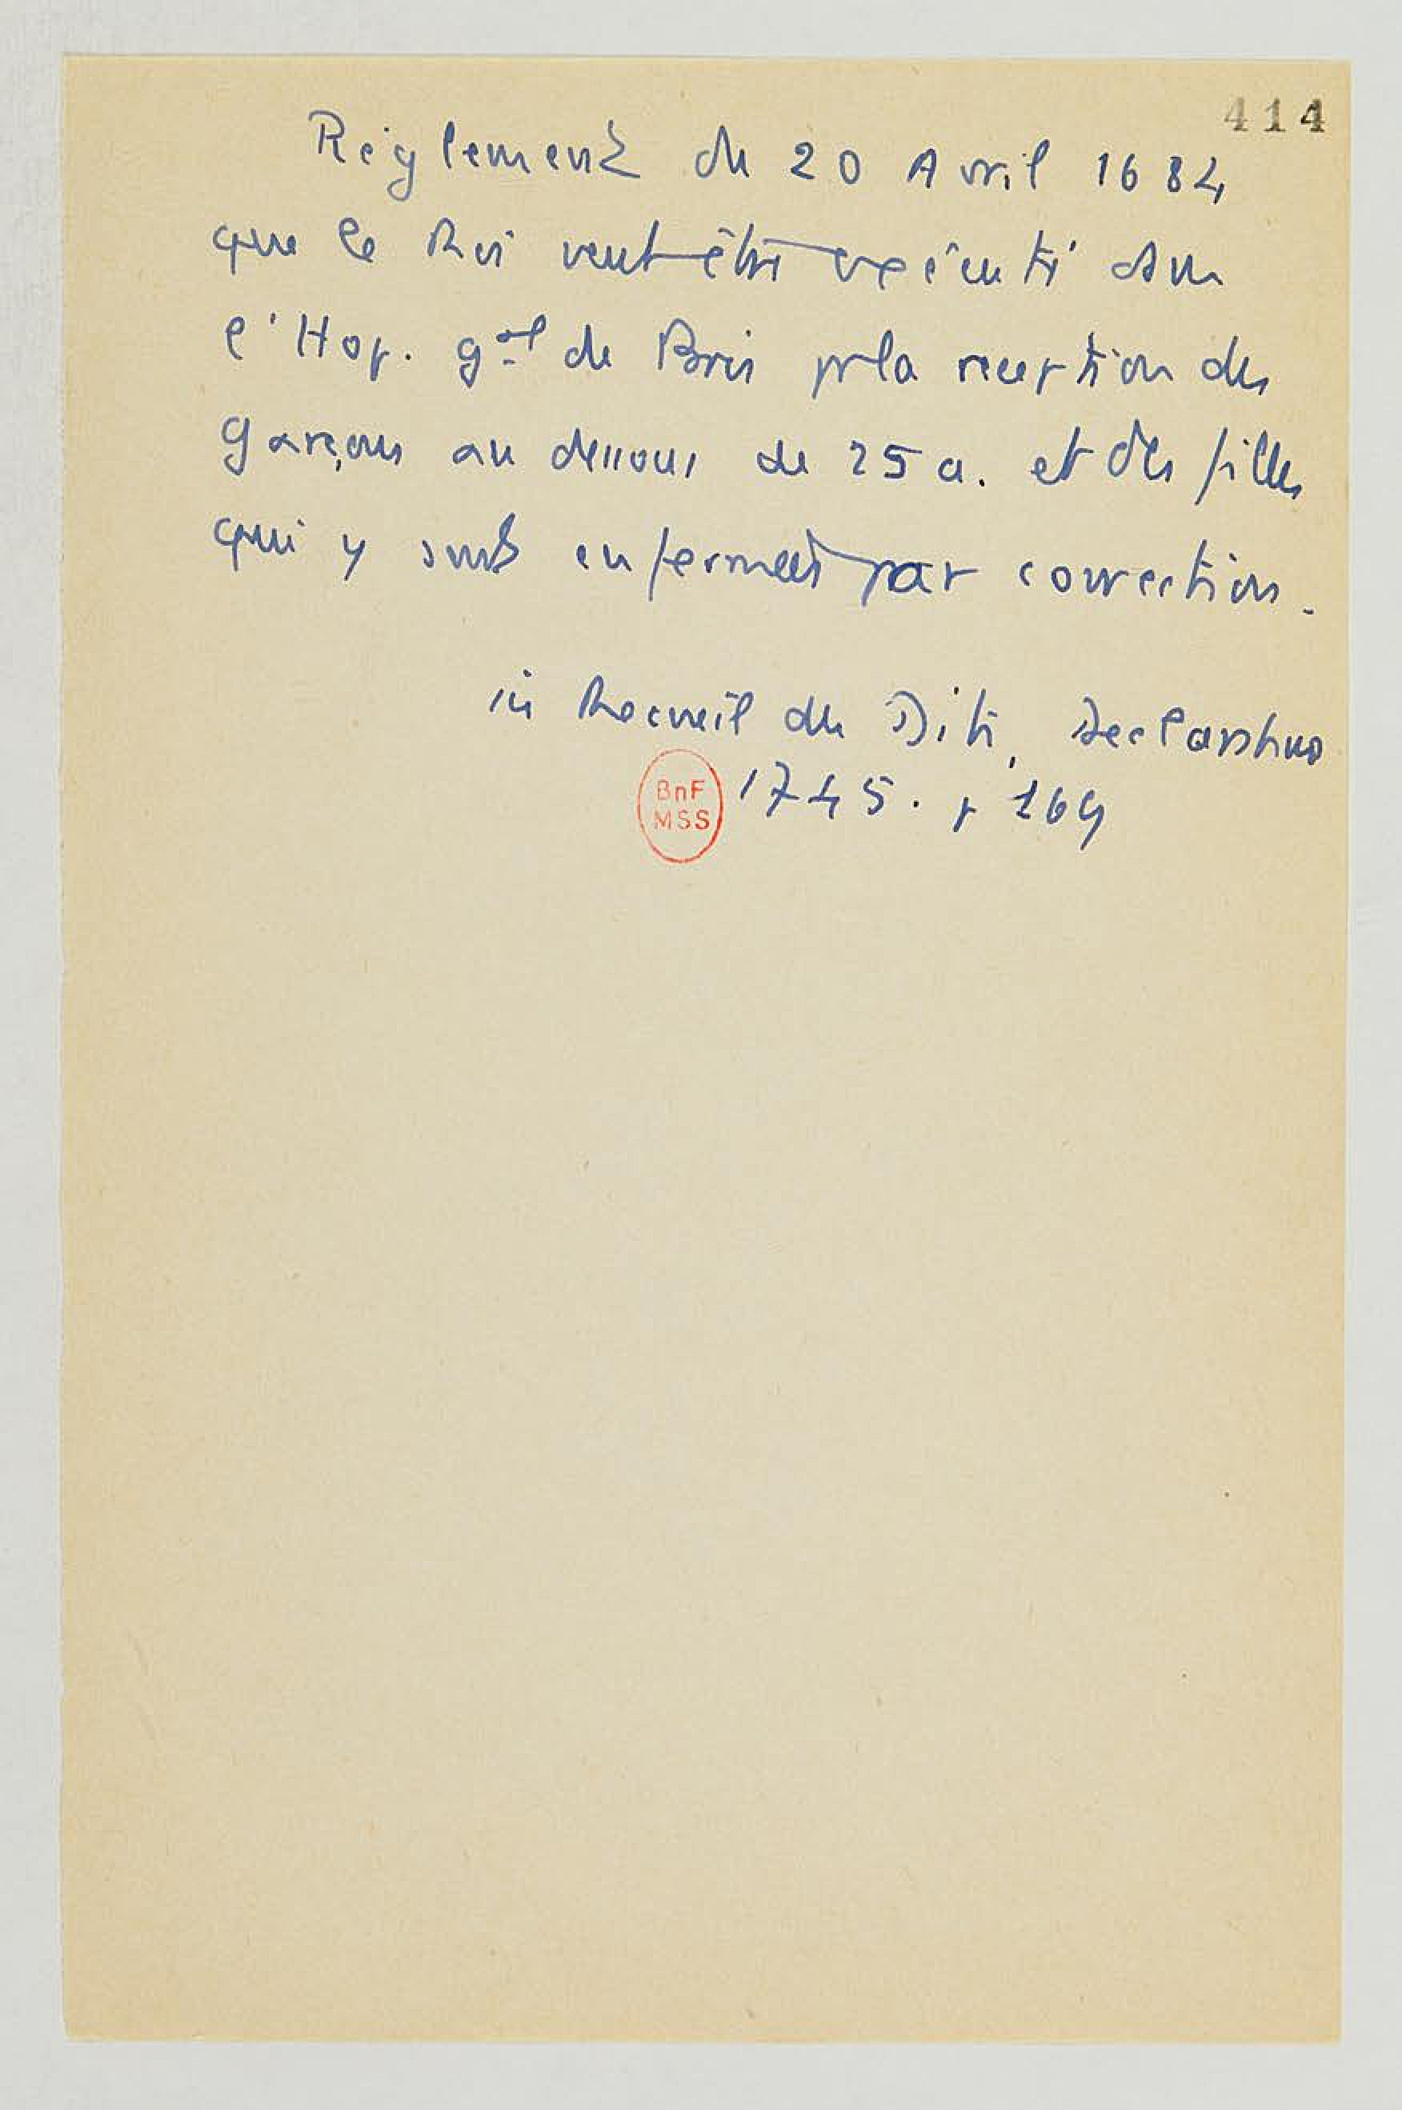 414
Règlement du 20 Avril 1684
que le Roi veut être exécuté dans
l'Hop. gal de Paris pr la reception des
garçons au dessous de 25 a. et des filles
qui y sont enfermées par correction.
in Recueil des Edits, Declarations
BnF
MSS
1745. p 169